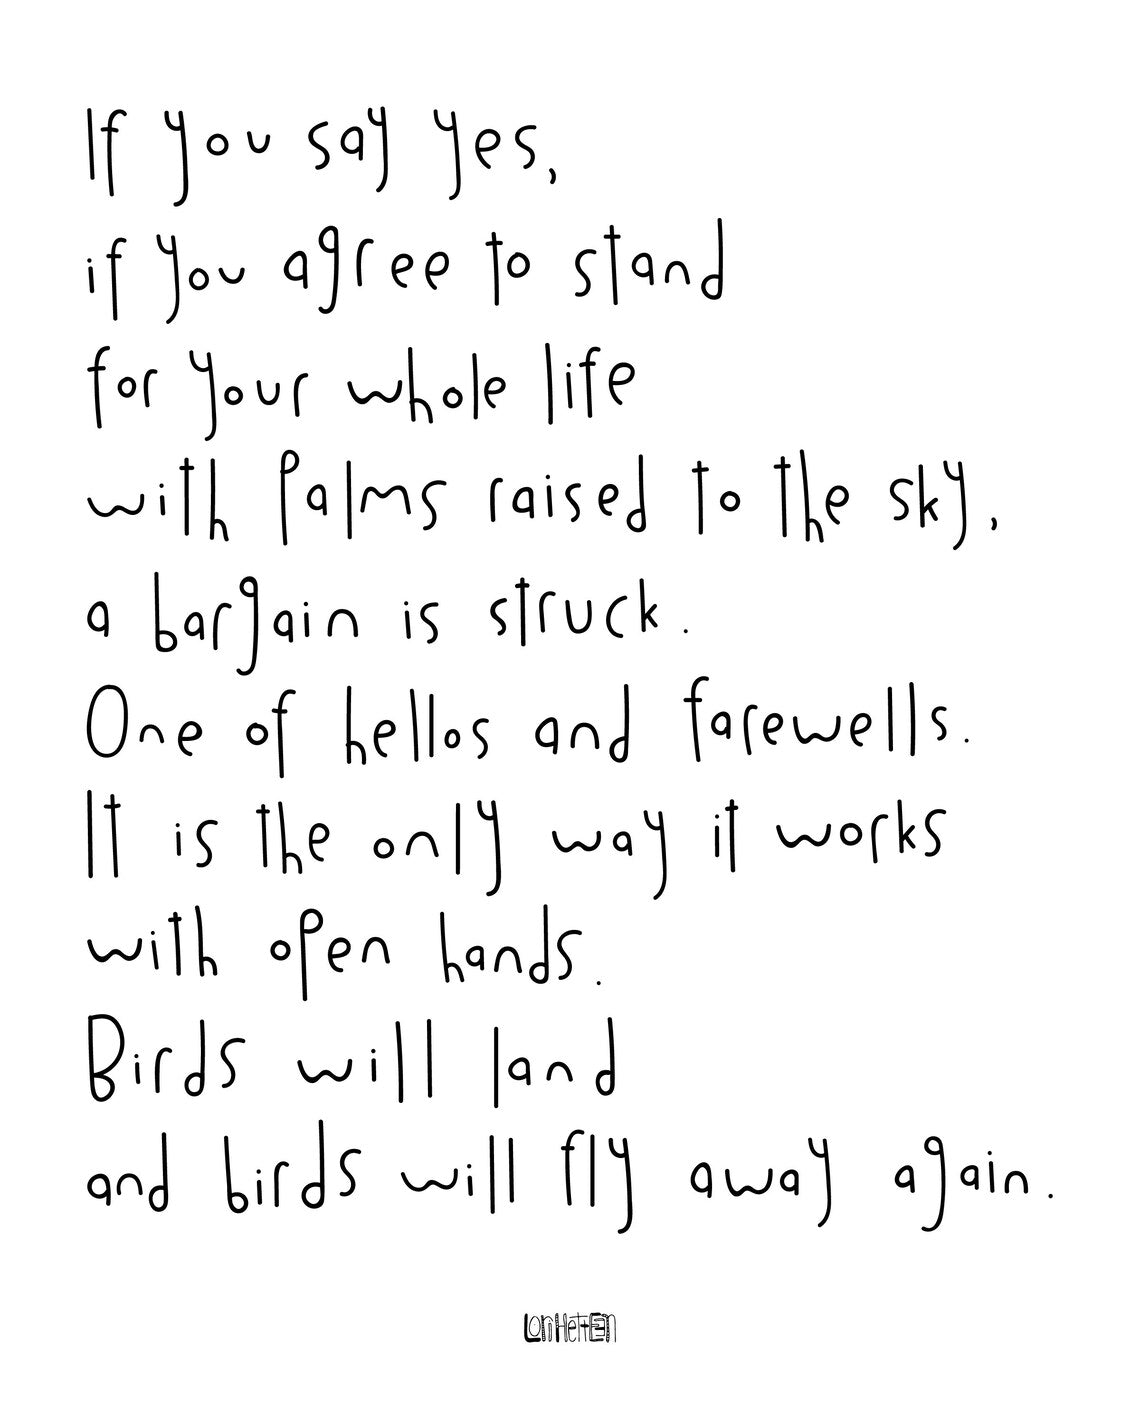 If you say yes,
if you agree to stand
for your whole life
with palms raised to the sky,
a bargain is struck.
One of hellos and farewells.
It is the only way it works
with open hands.
Birds will land
and birds will fly away again.
Lori Hetteen